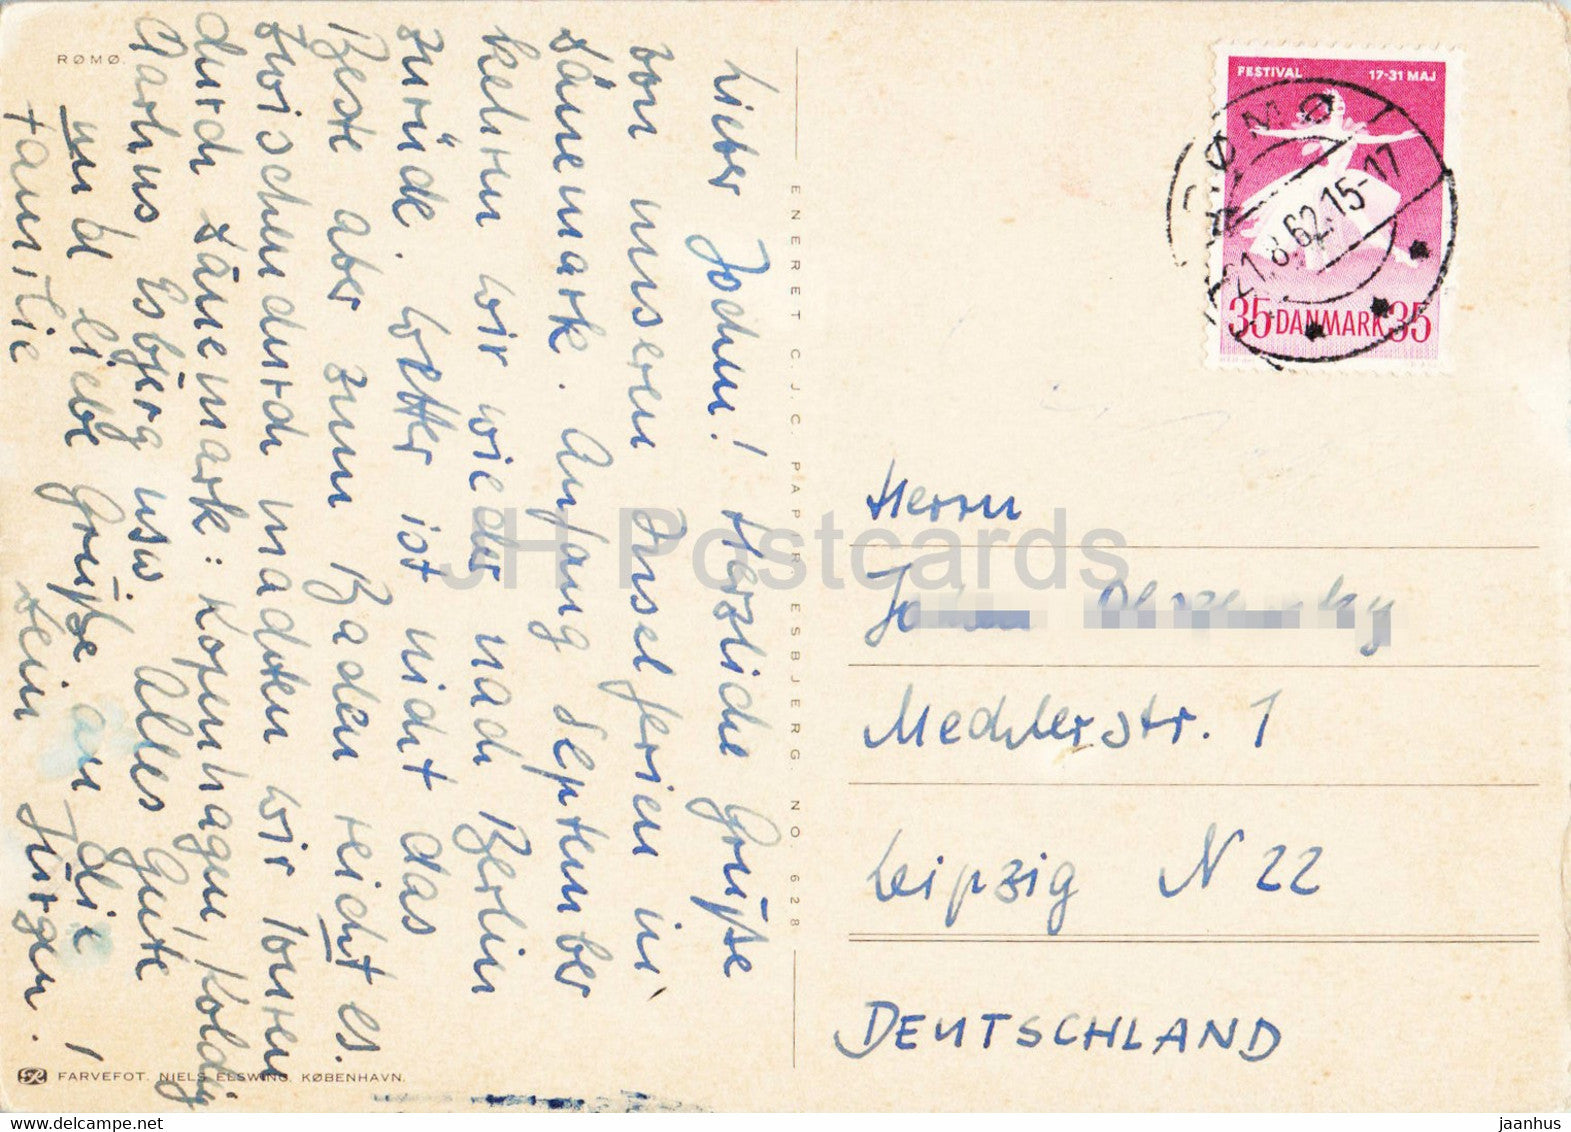 RØMØ.
Lieber Jochen! Herzliche Grüße
von unseren Inselferien in
Dänemark. Anfang September
kehren wir wieder nach Berlin
zurück. Wetter ist nicht das
Beste aber zum Baden reicht es.
Zwischendurch machten wir Touren
durch Dänemark: Kopenhagen, Kolding
Aarhus, Esbjerg usw. Alles Gute
und liebe Grüße an die
Familie
Dein Jürgen.
ENERET C.J.C. PAPIR. ESBJERG. NO. 628
FARVEFOT. NIELS ELSWING. KØBENHAVN.
FESTIVAL 17-31 MAJ
RØMØ
21.8.62.15-17
35 DANMARK 35
Herrn
Mechlerstr. 1
Leipzig N 22
DEUTSCHLAND
JH Postcards
hippostcard.com
jaanhus